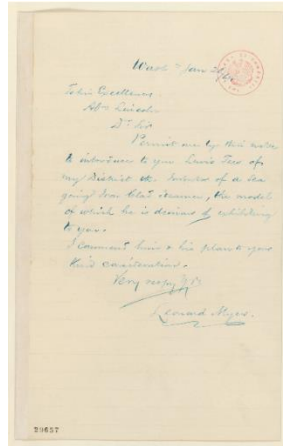 Wash. Jan 20/64
To his Excellency
Mr Lincoln
Dr Sir
Permit me by this note
to introduce to you Lewis of
my District inventor of a Sea
going Iron Clad Steamer, the model
of which he is desirous of exhibiting
to you.
I commend him & his plan to your
kind consideration.
Very respy Yrs
Leonard Myers.
29657